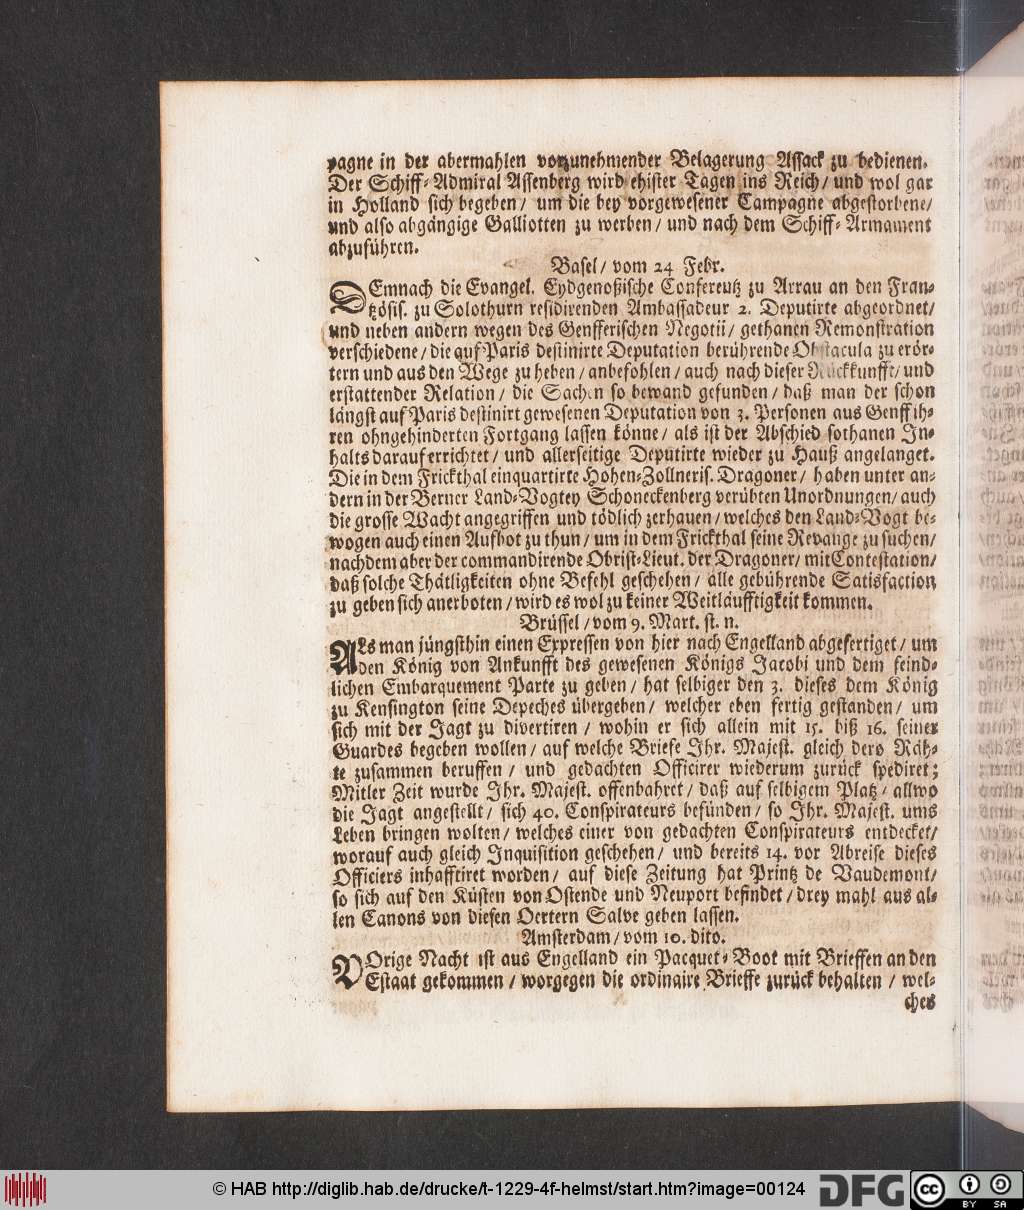 pagne in der abermahlen vorzunehmender Belagerung Assack zu bedienen.
Der Schiff-Admiral Assenberg wird ehister Tagen ins Reich/ und wol gar
in Holland sich begeben/ um die bey vorgewesener Campagne abgestorbene/
und also abgängige Galliotten zu werben/ und nach dem Schiff-Armament
abzuführen.
Basel/ vom 24 Febr.
DEmnach die Evangel. Eydgenoßische Confereutz zu Arrau an den Fran-
tzösis. zu Solothurn residirenden Ambassadeur 2. Deputirte abgeordnet/
und neben andern wegen des Genfferischen Negotii/ gethanen Remonstration
verschiedene/ die auf Paris destinirte Deputation berührende Obstacula zu erör-
tern und aus den Wege zu heben/ anbefohlen/ auch nach dieser Rückkunfft/ und
erstattender Relation/ die Sachen so bewand gefunden/ daß man der schon
längst auf Paris destinirt gewesenen Deputation von 3. Personen aus Genff ih-
ren ohngehinderten Fortgang lassen könne/ als ist der Abschied sothanen In-
halts darauf errichtet/ und allerseitige Deputirte wieder zu Hauß angelanget.
Die in dem Frickthal einquartirte Hohen-Zollneris. Dragoner/ haben unter an-
dern in der Berner Land-Vogtey Schoneckenberg verübten Unordnungen/ auch
die grosse Wacht angegriffen und tödlich zerhauen/ welches den Land-Vogt be-
wogen auch einen Aufbot zu thun/ um in dem Frickthal seine Revange zu suchen/
nachdem aber der commandirende Obrist-Lieut. der Dragoner/ mit Contestation/
daß solche Thätligkeiten ohne Befehl geschehen/ alle gebührende Satisfaction
zu geben sich anerboten/ wird es wol zu keiner Weitläufftigkeit kommen.
Brüssel/ vom 9. Mart. st. n.
ALs man jüngsthin einen Expressen von hier nach Engelland abgefertiget/ um
den König von Ankunfft des gewesenen Königs Jacobi und dem feind-
lichen Embarquement Parte zu geben/ hat selbiger den 3. dieses dem König
zu Kensington seine Depeches übergeben/ welcher eben fertig gestanden/ um
sich mit der Jagt zu divertiren/ wohin er sich allein mit 15. biß 16. seiner
Guardes begeben wollen/ auf welche Briefe Ihr. Majest. gleich dero Räh-
te zusammen beruffen/ und gedachten Officirer wiederum zurück spediret;
Mitler Zeit wurde Ihr. Majest. offenbahret/ daß auf selbigem Platz/ allwo
die Jagt angestellt/ sich 40. Conspirateurs befünden/ so Ihr. Majest. ums
Leben bringen wolten/ welches einer von gedachten Conspirateurs entdecket/
worauf auch gleich Inquisition geschehen/ und bereits 14. vor Abreise dieses
Officiers inhafftiret worden/ auf diese Zeitung hat Printz de Vaudemont/
so sich auf den Küsten von Ostende und Neuport befindet/ drey mahl aus al-
len Canons von diesen Oertern Salve geben lassen.
Amsterdam/ vom 10. dito.
VOrige Nacht ist aus Engelland ein Pacquet-Boot mit Brieffen an den
Estaat gekommen/ worgegen die ordinaire Brieffe zurück behalten/ wel-
ches
© HAB http://diglib.hab.de/drucke/t-1229-4f-helmst/start.htm?image=00124
DFG
cc BY SA